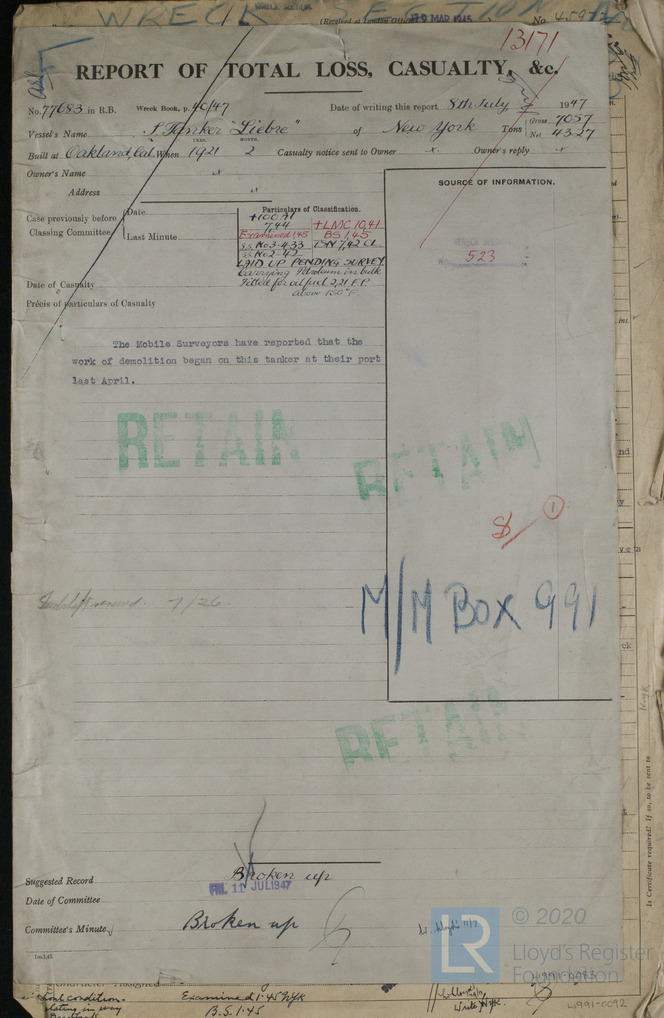 WRECK SECTION
(Received at London Office 9 MAR 1945 No. 459
13171
REPORT OF TOTAL LOSS, CASUALTY, &c.
No. 77683 in R.B. Wreck Book, p. 40/47 Date of writing this report 8th July 1947
Vessel's Name S. Tanker "Liebre" of New York Tons Gross 7057 Net 4327
Built at Oakland, Cal. When YEAR. 1921 MONTH. 2 Casualty notice sent to Owner x Owner's reply x
Owner's Name x
Address x
SOURCE OF INFORMATION.
523
Case previously before Classing Committee
Date
Last Minute
Particulars of Classification.
+100A1
7,44 +LMC 10,41
Examined 1,45 BS 1,45
SS. No 3-4,33 TSN 7,42 CL
SS No 2-42
LAID UP PENDING SURVEY
Carrying Petroleum in bulk
Fitted for oil fuel 2,21 F.P.
above 150°F.
Date of Casualty
Précis of particulars of Casualty
The Mobile Surveyors have reported that the
work of demolition began on this tanker at their port
last April.
RETAIN
RETAIN
1
M/M BOX 991
7/26
RETAIN
Suggested Record Broken up
FRI. 11 JUL 1947
Date of Committee
Committee's Minute Broken up
LR
© 2020
Lloyd's Register
Foundation
Is Certificate required? If so, to be sent to
Character Assigned
Examined 1.45 NYK
B.S. 1.45
Write NYK.
L991-0092